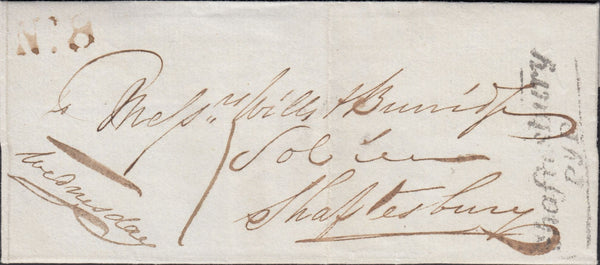 No. 8
Mess.rs Wills & Burridge
Solrs
Shaftesbury
Wednesday
Shaftesbury
Py P